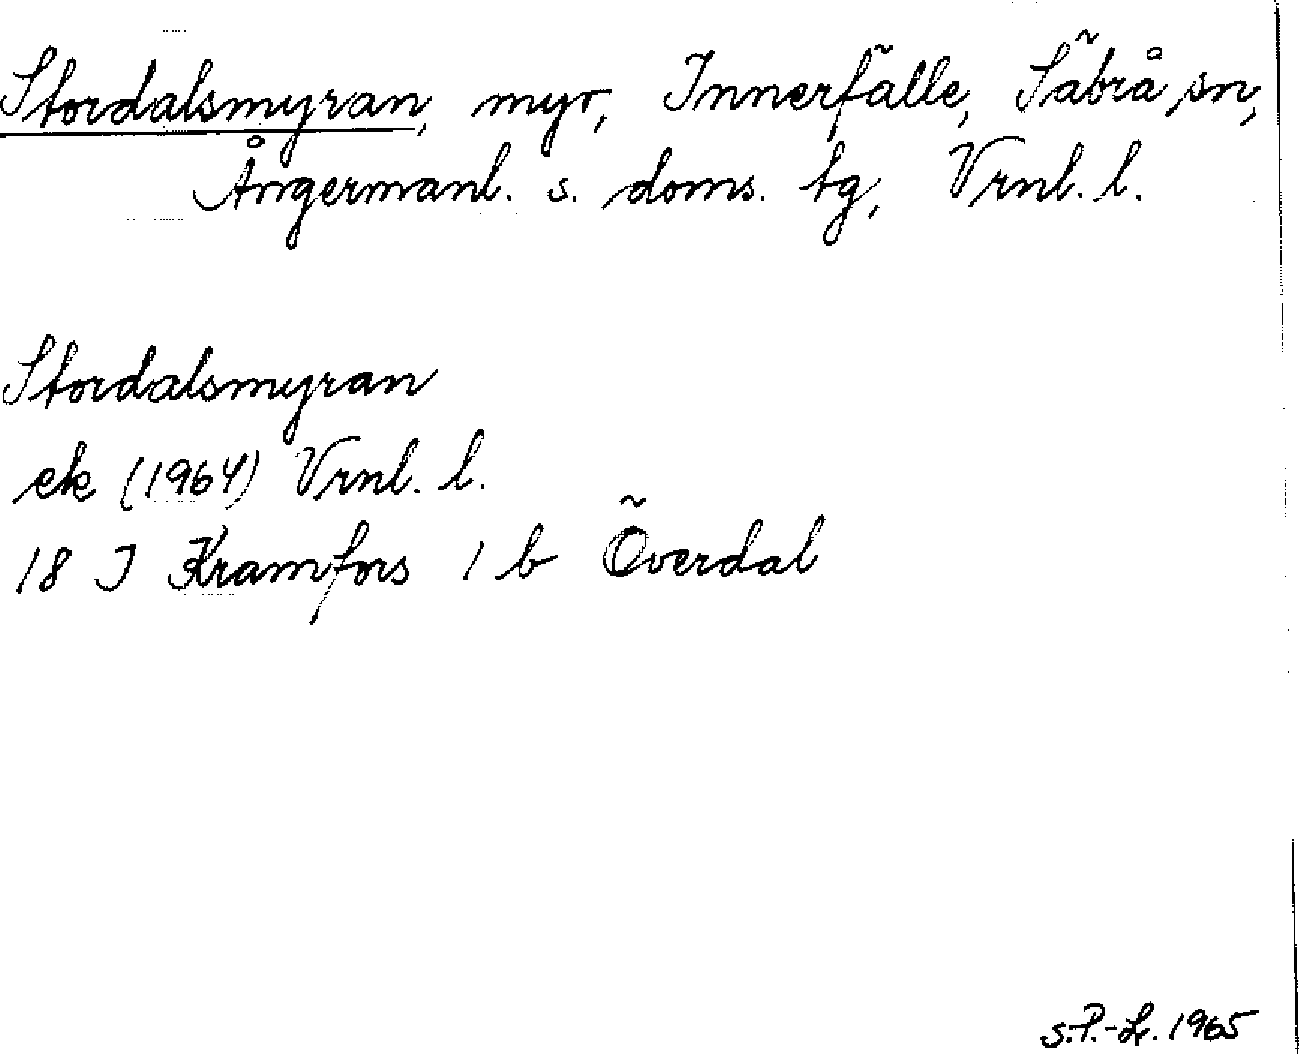 Stordalsmyran, myr, Innerfälle, Säbrå sn,
Ångermanl. s. doms. tg, Vrnl. l.
Stordalsmyran
ek (1964) Vrnl. l.
18 I Kramfors 1 b Överdal
S.P.-Lr. 1965